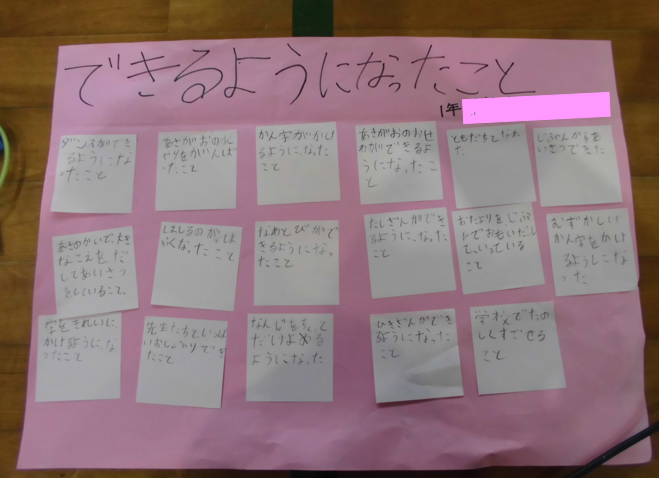 できるようになったこと
1年
ダンスができ
るようになっ
たこと
あさがおの水
やりをがんば
ったこと
かん字がかけ
るようになった
こと
あさがおのおせ
わができるよ
うになったこ
と
ともだちとなれ
た
じぶんからあ
いさつできた
あきのかいで、大き
なこえを、だ
してあいさつ
をしていること。
はしるのがは
やくなったこと
なわとびがで
きるようになっ
たこと
たしざんができ
るようになった
こと
おたよりをじぶ
んでおもいだし
て、いっている
こと
むずかしい
かん字をかけ
るようになっ
た
字をきれいに
かけるようにな
ったこと
先生たちといっぱ
いおしゃべりでき
たこと
なんじをちょっと
だけよめる
ようになった
ひきざんができ
るようになった
こと
学校でたの
しくすごせる
こと